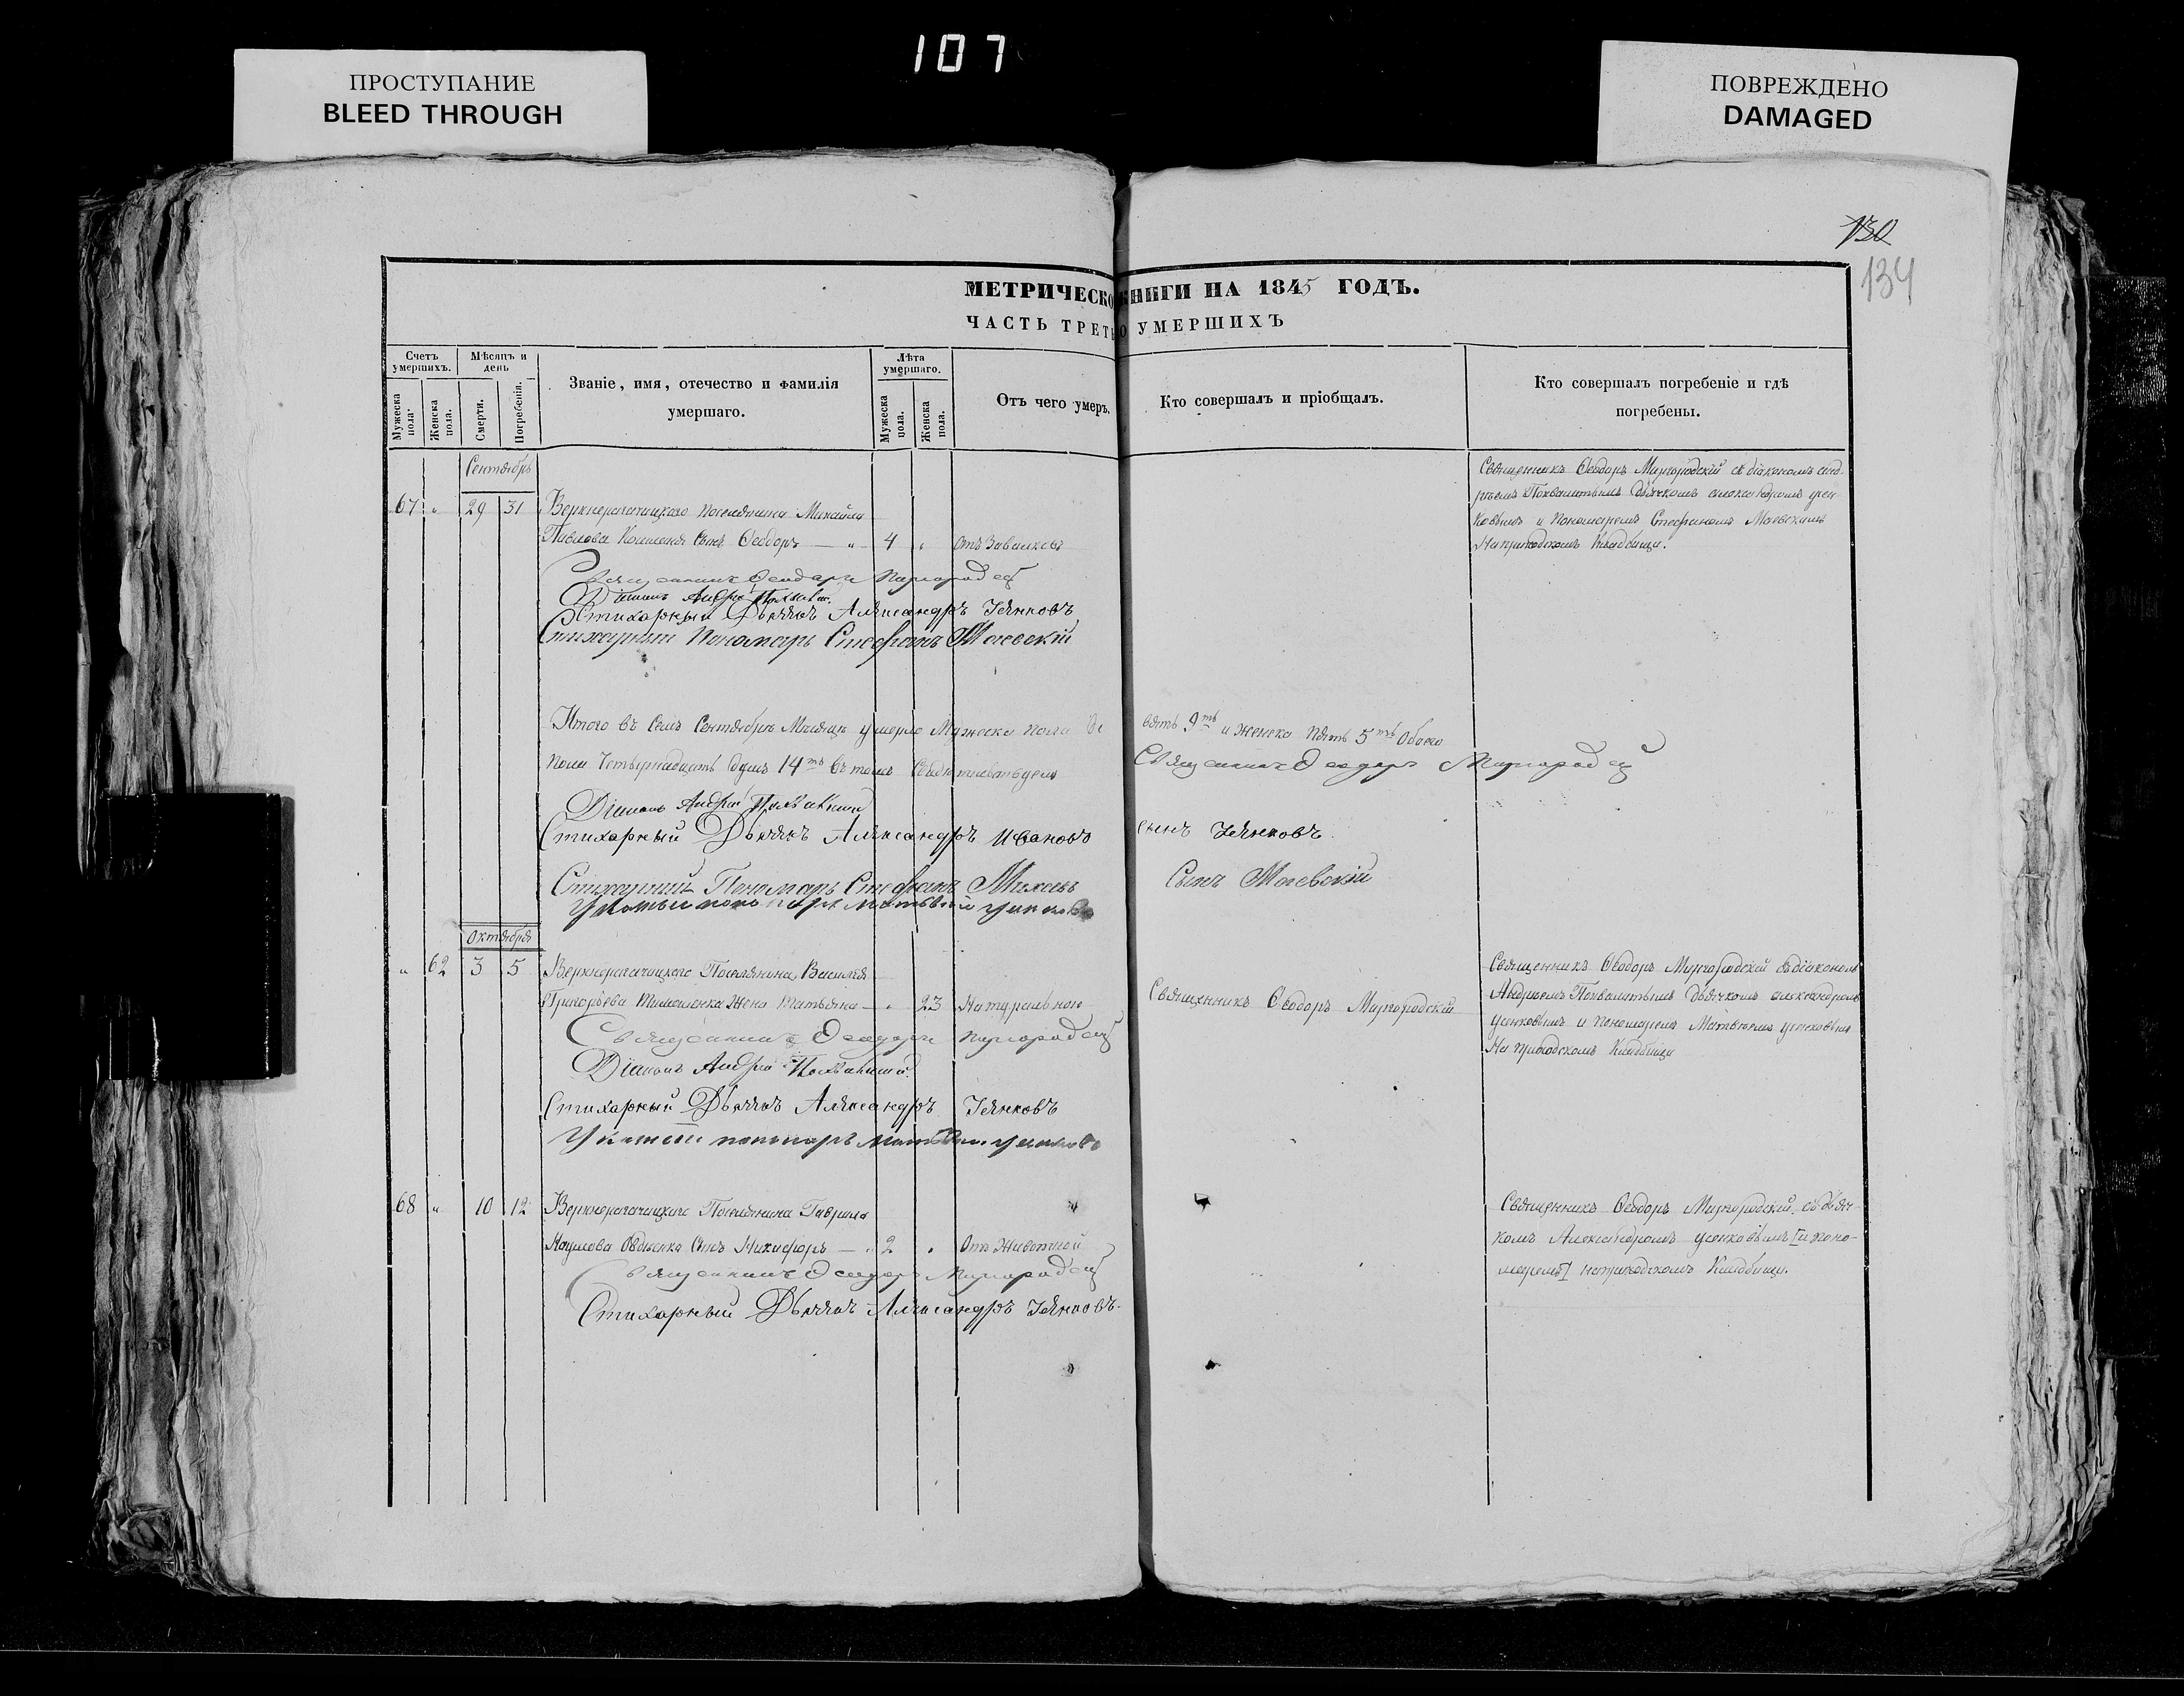 107
ПРОСТУПАНИЕ
BLEED THROUGH
ПОВРЕЖДЕНО
DAMAGED
130
134
МЕТРИЧЕСКО КНИГИ НА 1845 ГОДЪ.
ЧАСТЬ ТРЕТЬ О УМЕРШИХЪ
Счетъ умершихъ.
Мужеска пола.
Женска пола.
Мѣсяцъ и день
Смерти.
Погребенія.
Званіе, имя, отечество и фамилія
умершаго.
Лѣта умершаго.
Мужеска пола.
Женска пола.
Отъ чего умеръ.
Кто совершалъ и пріобщалъ.
Кто совершалъ погребеніе и гдѣ
погребены.
Сентябрь
67 " 29 31 Верхнерогачицкаго поселянина Михайла
Павлова сынъ Ѳеодоръ — " 4 "
Священникъ Ѳеодоръ Миргородскій съ діакономъ
дьячкомъ
и пономаремъ Стефаномъ Маевскимъ
На приходскомъ Кладбищи.
Священникъ Ѳеодоръ Миргородскій
Діаконъ Андрей
Стихарный Дьячекъ Александръ Усенковъ
Стихарный Пономарь Стефанъ Маевскій
Итого въ семъ Сентябрѣ Мѣсяцѣ умерло Мужеска пола де
вять 9ть и женска пять 5ть Обоего
пола Четырнадцать душъ 14ть въ томъ свидѣтельствуемъ
Священникъ Ѳеодоръ Миргородскій
Діаконъ Андрей
Стихарный Дьячекъ Александръ Ивановъ
сынъ Усенковъ
Стихарный Пономарь Стефанъ
Сынъ Маевскій
Указный пономарь Матвѣй Усенковъ
Октября
" 62 3 5 Верхнерогачицкаго Поселянина Василія
Григорьева Тимошенка Жена Татьяна — " 23 Натуральною
Священникъ Ѳеодоръ Миргородскій
Священникъ Ѳеодоръ Миргородскій съ діакономъ
Андреемъ дьячкомъ Александромъ
Усенковымъ и пономаремъ Матвѣемъ Усенковымъ
На приходскомъ Кладбищи
Священникъ Ѳеодоръ Миргородскій
Діаконъ Андрей
Стихарный Дьячекъ Александръ Усенковъ
Указный пономарь Матвѣй Усенковъ
68 " 10 12 Верхнерогачицкаго Поселянина Гаврила
Наумова сынъ Никифоръ — " 2 " Отъ Животной
Священникъ Ѳеодоръ Миргородскій съ дьяч-
комъ Александромъ Усенковымъ и поно-
маремъ на приходскомъ Кладбищи.
Священникъ Ѳеодоръ Миргородскій
Стихарный Дьячекъ Александръ Усенковъ.